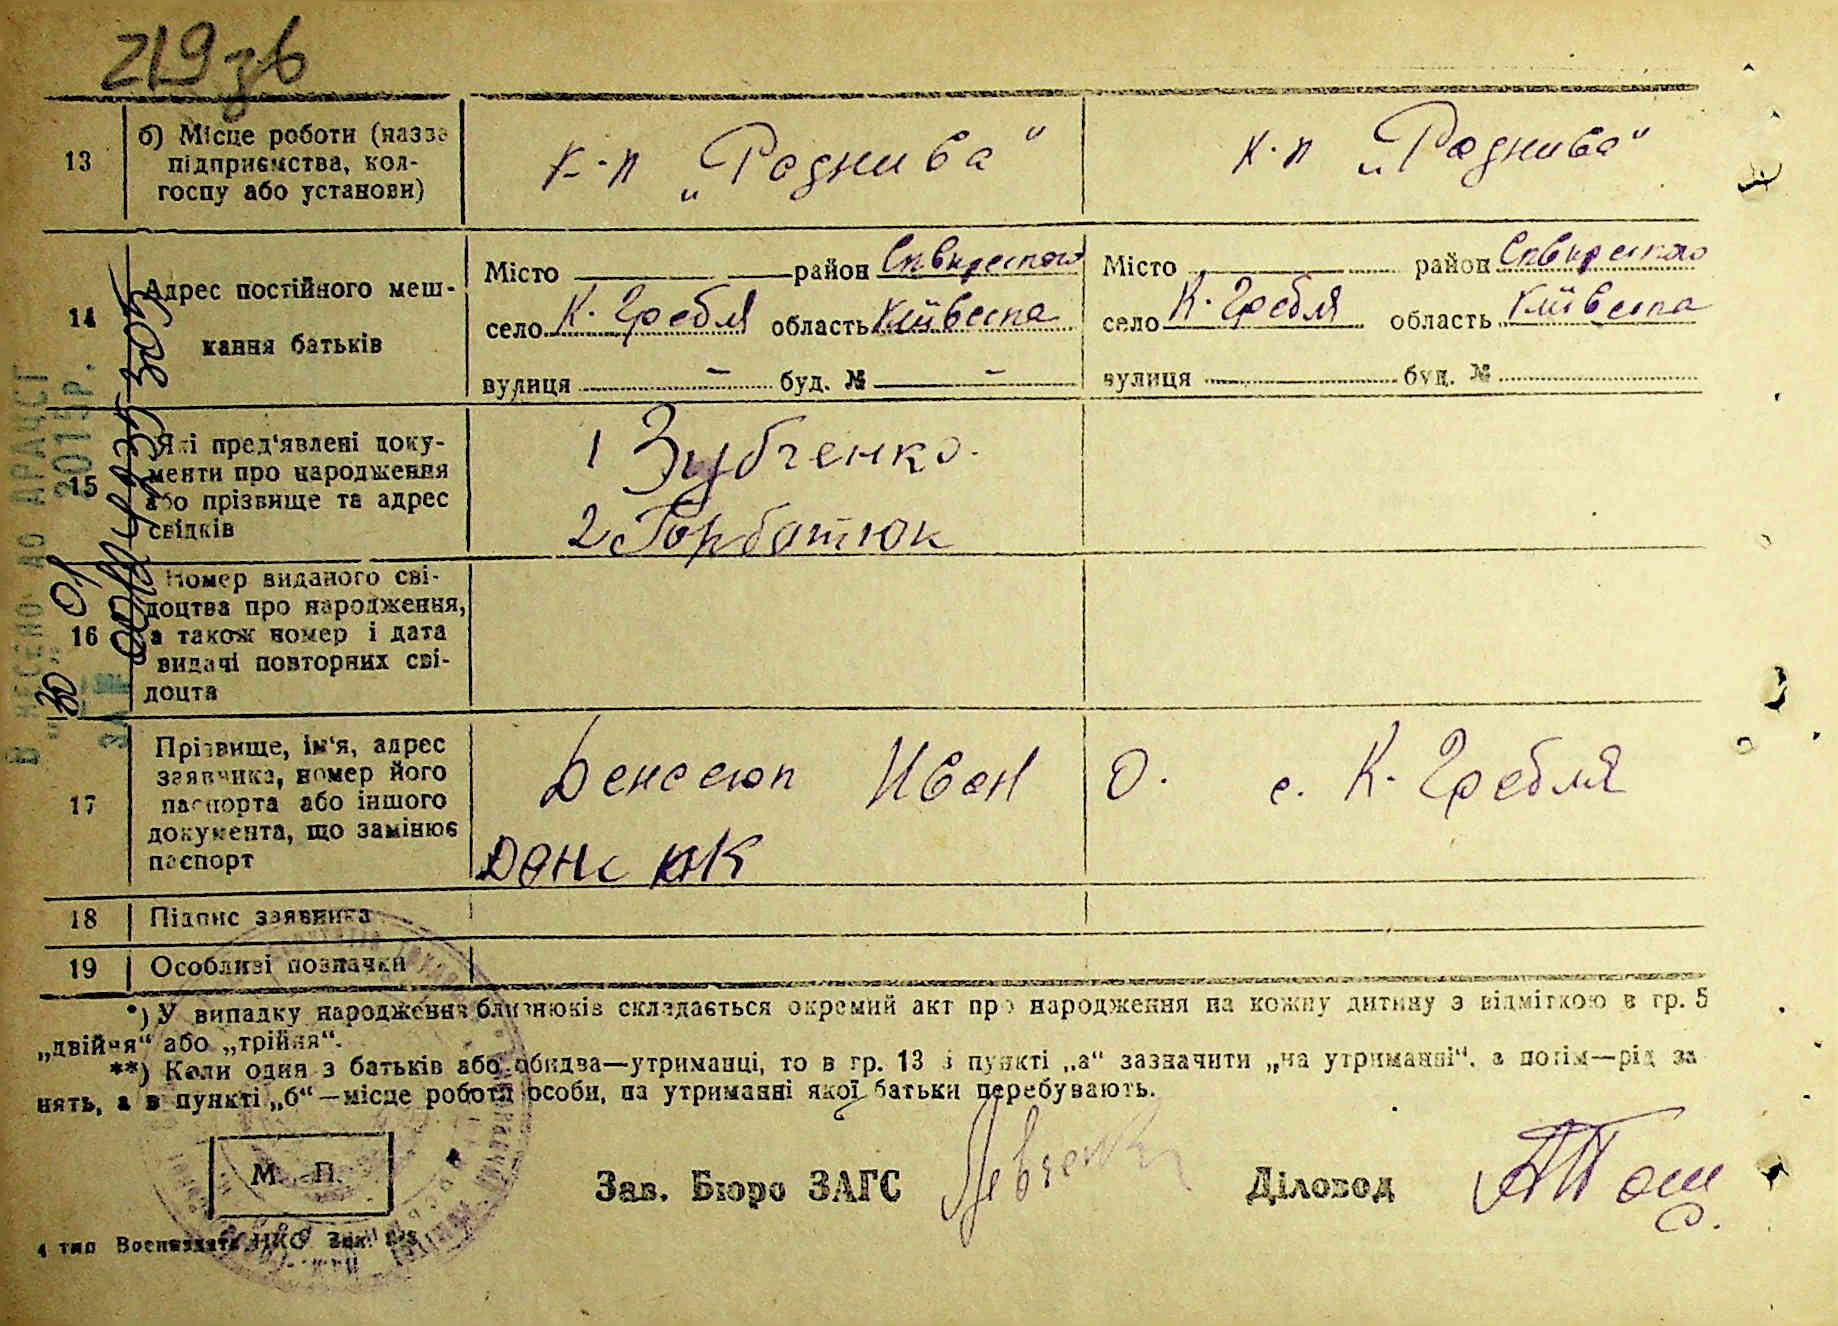 219 зв
13
б) Місце роботи (назва
підприємства, кол-
госпу або установи)
к-п „Раднива“
к-п „Раднива“
14
Адрес постійного меш-
кання батьків
Місто район Сквирського
село К. Гребля область Київська
вулиця - буд. № -
Місто район Сквирського
село К. Гребля область Київська
вулиця буд. №
15
Які пред'явлені доку-
менти про народження
або прізвище та адрес
свідків
1 Зубченко.
2 Горбатюк
16
Номер виданого сві-
доцтва про народження,
а також номер і дата
видачі повторних сві-
доцта
17
Прізвище, ім'я, адрес
заявника, номер його
паспорта або іншого
документа, що замінює
паспорт
Денсеюк Иван О. с. К. Гребля
18
Підпис заявника
19
Особливі позначки
*) У випадку народження близнюків складається окремий акт про народження на кожну дитину з відміткою в гр. 5
„двійня“ або „трійня“.
**) Коли один з батьків або обидва—утриманці, то в гр. 13 і пункті „а“ зазначити „на утриманні“, а потім—рід за
нять, а в пункті „б“—місце роботи особи, на утриманні якої батьки перебувають.
М. П.
Зав. Бюро ЗАГС
Діловод